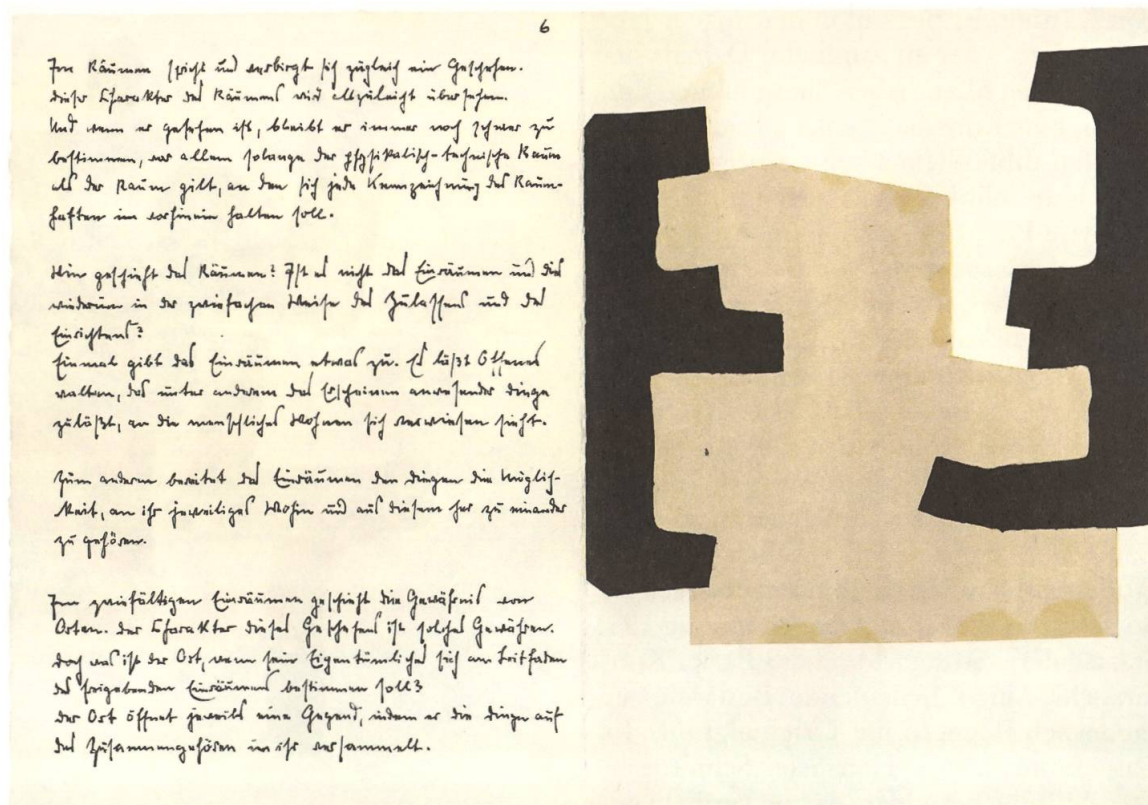 6
Im Räumen spricht und verbirgt sich zugleich ein Geschehen.
Dieser Charakter des Räumens wird allzuleicht übersehen.
Und wenn er gesehen ist, bleibt er immer noch schwer zu
bestimmen, vor allem solange der physikalisch-technische Raum
als der Raum gilt, an den sich jede Kennzeichnung des Raum-
haften im vorhinein halten soll.
Wie geschieht das Räumen? Ist es nicht das Einräumen und dies
wiederum in der zwiefachen Weise des Zulassens und des
Einrichtens?
Einmal gibt das Einräumen etwas zu. Es läßt Offenes
walten, das unter anderem das Erscheinen anwesender Dinge
zuläßt, an die menschliches Wohnen sich verwiesen sieht.
Zum andern bereitet das Einräumen den Dingen die Möglich-
keit, an ihr jeweiliges Wohin und aus diesem her zu einander
zu gehören.
Im zwiefältigen Einräumen geschieht die Gewährnis von
Orten. Der Charakter dieses Geschehens ist solches Gewähren.
Doch was ist der Ort, wenn sein Eigentümliches sich am Leitfaden
des freigebenden Einräumens bestimmen soll?
Der Ort öffnet jeweils eine Gegend, indem er die Dinge auf
das Zusammengehören in ihr versammelt.